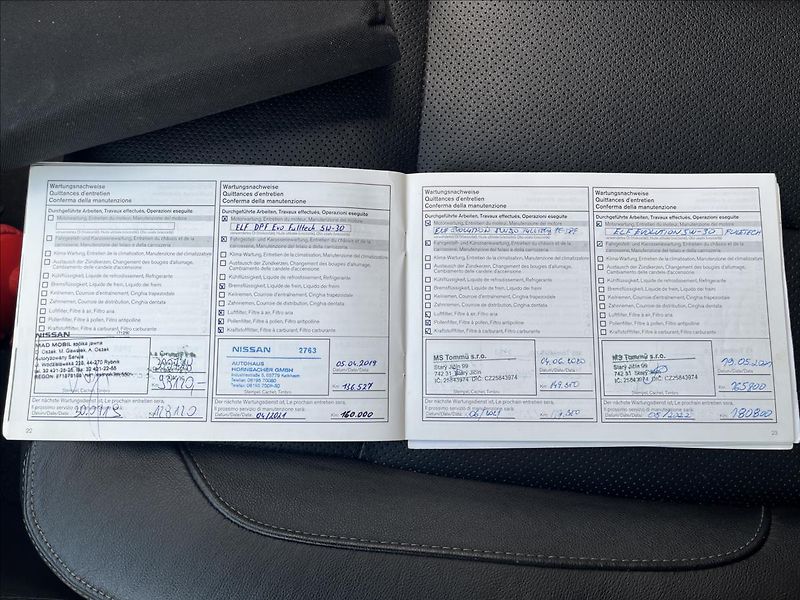 Wartungsnachweise
Quittances d'entretien
Conferma della manutenzione
Durchgeführte Arbeiten, Travaux effectués, Operazioni eseguite
Motorwartung, Entretien du moteur, Manutenzione del motore
Fahrgestell- und Karosseriewartung, Entretien du châssis et de la
carrosserie, Manutenzione del telaio e della carrozzeria
Klima-Wartung, Entretien de la climatisation, Manutenzione del climatizzatore
Austausch der Zündkerzen, Changement des bougies d'allumage,
Cambiamento delle candele d'accensione
Kühlflüssigkeit, Liquide de refroidissement, Refrigerante
Bremsflüssigkeit, Liquide de frein, Liquido dei freni
Keilriemen, Courroie de ventilateur, Cinghia trapezoidale
Zahnriemen, Courroie de distribution, Cinghia dentata
Luftfilter, Filtre à air, Filtro aria
Pollenfilter, Filtre à pollen, Filtro antipolline
Kraftstoffilter, Filtre à carburant, Filtro carburante
NISSAN
MAD MOBIL spółka jawna
Autoryzowany Serwis
44-270 Rybnik
Stempel, Cachet, Timbro
Der nächste Wartungsdienst ist, Le prochain entretien sera,
Il prossimo servizio di manutenzione sarà:
Datum/Date/Data
Km
22
Wartungsnachweise
Quittances d'entretien
Conferma della manutenzione
Durchgeführte Arbeiten, Travaux effectués, Operazioni eseguite
Motorwartung, Entretien du moteur, Manutenzione del motore
ELF DPF Evo Fulltech 5W-30
Fahrgestell- und Karosseriewartung, Entretien du châssis et de la
carrosserie, Manutenzione del telaio e della carrozzeria
Klima-Wartung, Entretien de la climatisation, Manutenzione del climatizzatore
Austausch der Zündkerzen, Changement des bougies d'allumage,
Cambiamento delle candele d'accensione
Kühlflüssigkeit, Liquide de refroidissement, Refrigerante
Bremsflüssigkeit, Liquide de frein, Liquido dei freni
Keilriemen, Courroie de ventilateur, Cinghia trapezoidale
Zahnriemen, Courroie de distribution, Cinghia dentata
Luftfilter, Filtre à air, Filtro aria
Pollenfilter, Filtre à pollen, Filtro antipolline
Kraftstoffilter, Filtre à carburant, Filtro carburante
NISSAN 2763
AUTOHAUS
HORNBACHER GMBH
65779 Kelkheim
05.04.2019
Datum/Date/Data
Km 136.527
Stempel, Cachet, Timbro
Der nächste Wartungsdienst ist, Le prochain entretien sera,
Il prossimo servizio di manutenzione sarà:
Datum/Date/Data 04/2021 Km 160.000
Wartungsnachweise
Quittances d'entretien
Conferma della manutenzione
Durchgeführte Arbeiten, Travaux effectués, Operazioni eseguite
Motorwartung, Entretien du moteur, Manutenzione del motore
Fahrgestell- und Karosseriewartung, Entretien du châssis et de la
carrosserie, Manutenzione del telaio e della carrozzeria
Klima-Wartung, Entretien de la climatisation, Manutenzione del climatizzatore
Austausch der Zündkerzen, Changement des bougies d'allumage,
Cambiamento delle candele d'accensione
Kühlflüssigkeit, Liquide de refroidissement, Refrigerante
Bremsflüssigkeit, Liquide de frein, Liquido dei freni
Keilriemen, Courroie de ventilateur, Cinghia trapezoidale
Zahnriemen, Courroie de distribution, Cinghia dentata
Luftfilter, Filtre à air, Filtro aria
Pollenfilter, Filtre à pollen, Filtro antipolline
Kraftstoffilter, Filtre à carburant, Filtro carburante
MS Tommü s.r.o.
Starý Jičín 99
742 31 Starý Jičín
IČ: 25843974 DIČ: CZ25843974
04.06.2020
Datum/Date/Data
Km 149.510
Stempel, Cachet, Timbro
Der nächste Wartungsdienst ist, Le prochain entretien sera,
Il prossimo servizio di manutenzione sarà:
Datum/Date/Data 06/2021 Km
Wartungsnachweise
Quittances d'entretien
Conferma della manutenzione
Durchgeführte Arbeiten, Travaux effectués, Operazioni eseguite
Motorwartung, Entretien du moteur, Manutenzione del motore
ELF EVOLUTION 5W-30 FULLTECH
Fahrgestell- und Karosseriewartung, Entretien du châssis et de la
carrosserie, Manutenzione del telaio e della carrozzeria
Klima-Wartung, Entretien de la climatisation, Manutenzione del climatizzatore
Austausch der Zündkerzen, Changement des bougies d'allumage,
Cambiamento delle candele d'accensione
Kühlflüssigkeit, Liquide de refroidissement, Refrigerante
Bremsflüssigkeit, Liquide de frein, Liquido dei freni
Keilriemen, Courroie de ventilateur, Cinghia trapezoidale
Zahnriemen, Courroie de distribution, Cinghia dentata
Luftfilter, Filtre à air, Filtro aria
Pollenfilter, Filtre à pollen, Filtro antipolline
Kraftstoffilter, Filtre à carburant, Filtro carburante
MS Tommü s.r.o.
Starý Jičín 99
742 31 Starý Jičín
IČ: 25843974 DIČ: CZ25843974
19.05.2021
Datum/Date/Data
Km 165800
Stempel, Cachet, Timbro
Der nächste Wartungsdienst ist, Le prochain entretien sera,
Il prossimo servizio di manutenzione sarà:
Datum/Date/Data 05/2022 Km 180800
23